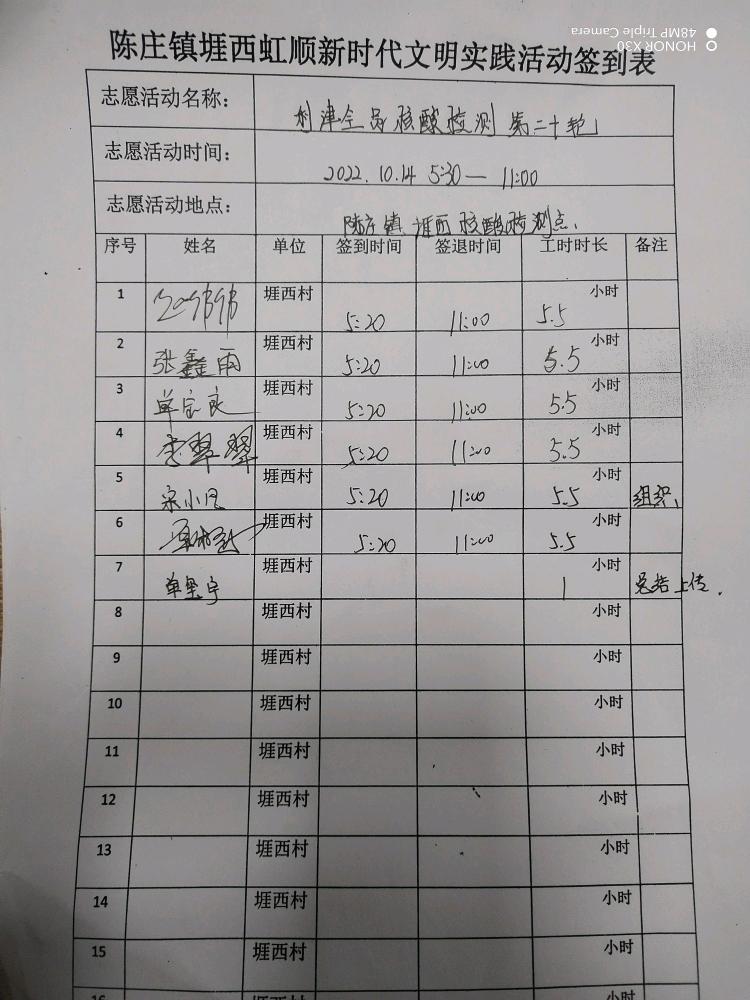 HONOR X30
48MP Triple Camera
陈庄镇堐西虹顺新时代文明实践活动签到表
志愿活动名称： 利津全员核酸检测 第二十轮
志愿活动时间： 2022.10.14 5:30— 11:00
志愿活动地点： 陈庄镇 堐西核酸检测点.
序号 姓名 单位 签到时间 签退时间 工时时长 备注
1 堐西村 5:20 11:00 5.5 小时
2 张鑫雨 堐西村 5:20 11:00 5.5 小时
3 单宝良 堐西村 5:20 11:00 5.5 小时
4 李翠翠 堐西村 5:20 11:00 5.5 小时
5 宋小凤 堐西村 5:20 11:00 5.5 小时 组织、
6 堐西村 5:20 11:00 5.5 小时
7 单宁 堐西村 1 小时 总结上传.
8 堐西村 小时
9 堐西村 小时
10 堐西村 小时
11 堐西村 小时
12 堐西村 小时
13 堐西村 小时
14 堐西村 小时
15 堐西村 小时
16 堐西村 小时